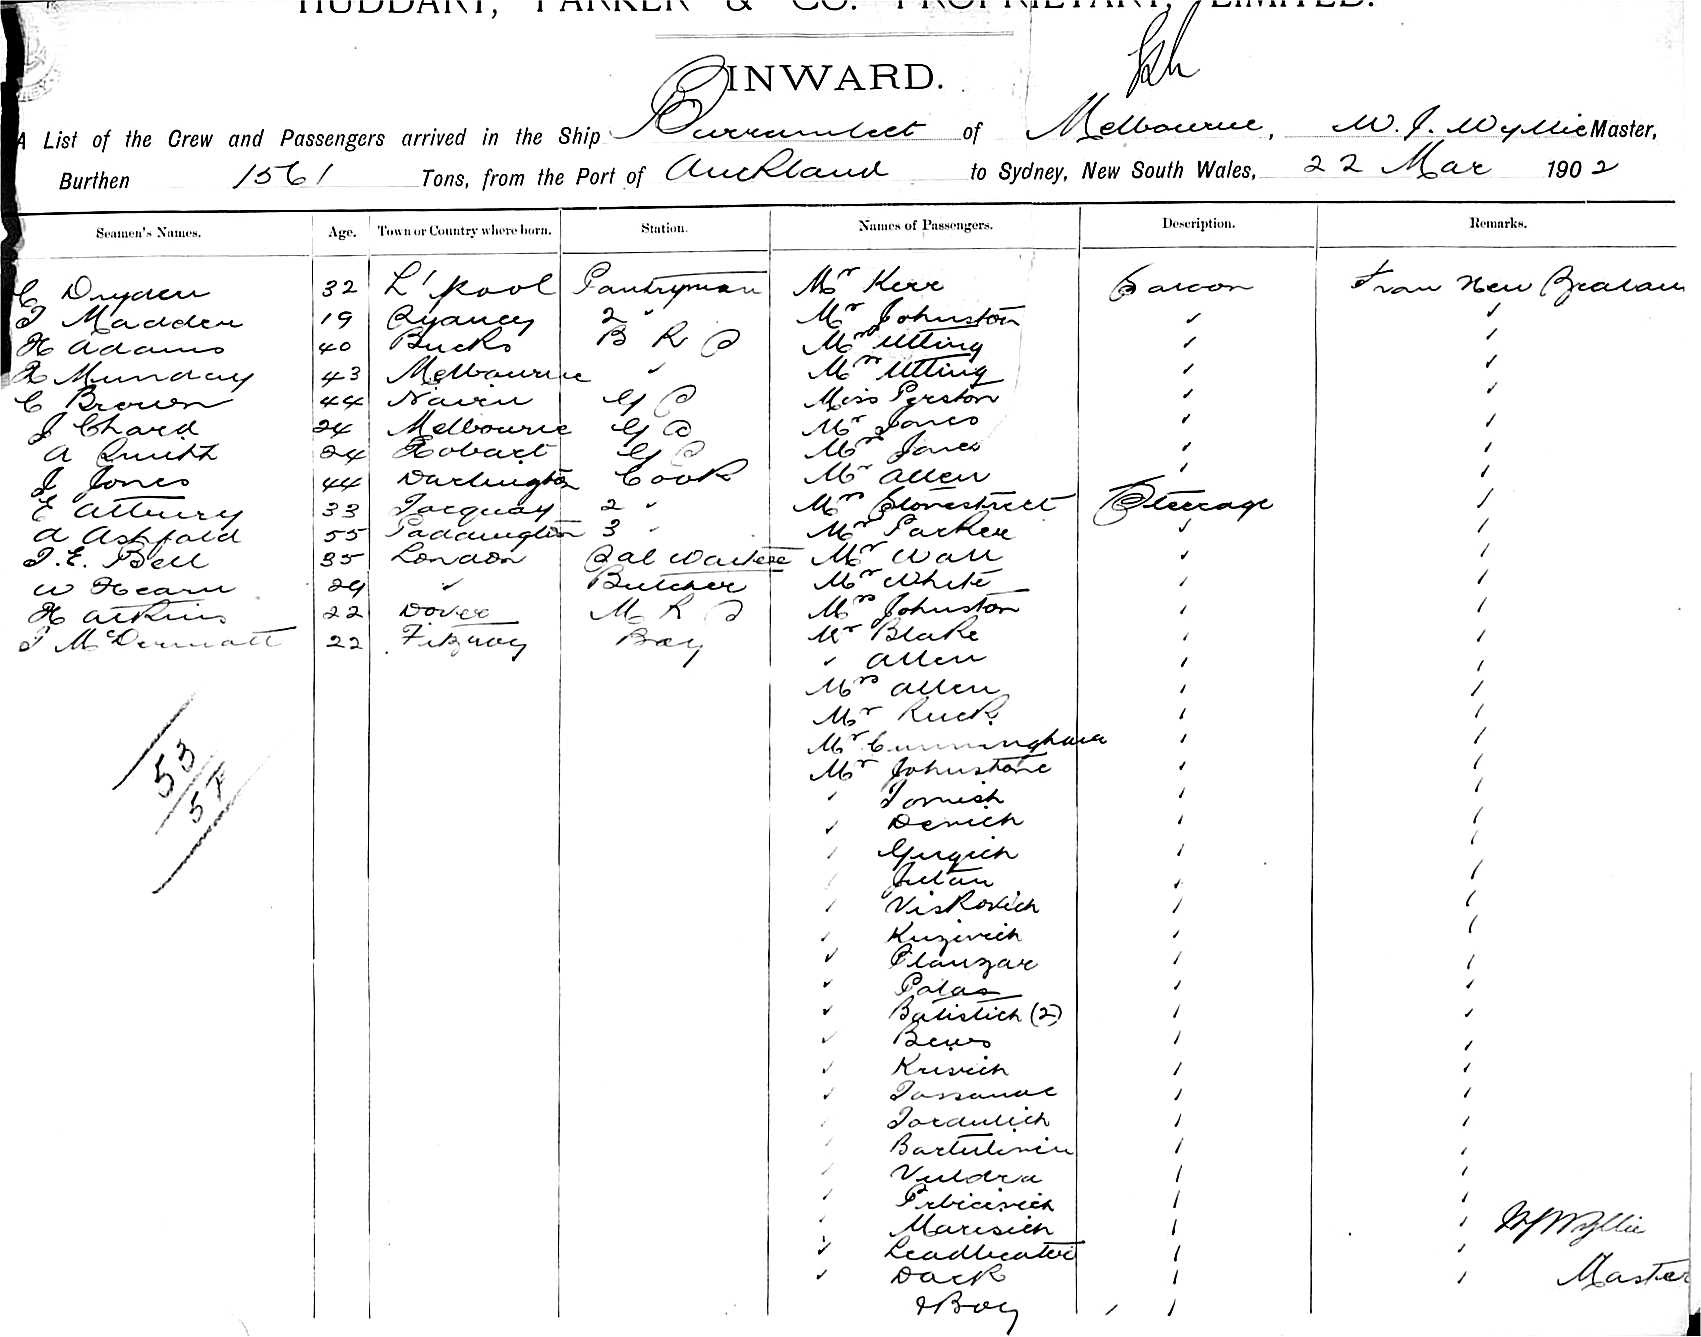 HUDDART, PARKER & CO. PROPRIETARY, LIMITED.
INWARD.
A List of the Crew and Passengers arrived in the Ship Burrumbeet of Melbourne, W. J. Wyllie Master,
Burthen 1561 Tons, from the Port of Auckland to Sydney, New South Wales, 22 Mar 1902
Seamen's Names. Age. Town or Country where born. Station. Names of Passengers. Description. Remarks.
C Dryden 32 L'pool Pantryman Mr Kerr Saloon From New Zealand
T Madden 19 2 " Mr Johnston " "
H Adams 40 Bucks B R S Mr Utting " "
Munday 43 Melbourne " Mrs Utting " "
C Brown 44 Nairn G S Miss Pyrston " "
J Chard 24 Melbourne G S Mr Jones " "
A Smith 24 Hobart G S Mr Jones " "
J Jones 44 Darlington Cook Mr Allen " "
E Atbury 33 Torquay 2 " Mrs Stonestreet Steerage "
A Ashfold 55 Paddington 3 " Mr Parker " "
T. E. Bell 35 London Mr Wall " "
W Hearn 29 " Butcher Mr White " "
H Atkins 22 Dover M R S Mrs Johnston " "
T McDermott 22 Fitzroy Boy Mr Blake " "
" Allen " "
Mrs Allen " "
Mr Ruck " "
Mr Cunningham " "
Mr Johnstone " "
" Tomich " "
" Devich " "
" Grgich " "
" Jutan " "
" Viskovich " "
" Kuzivich " "
" Clauzar " "
" Palas " "
" Batistich (2) " "
" Bews " "
" Krisvich " "
" "
" Jordulich " "
" "
" "
" "
" Marisich " "
" Leadbeater " "
" Dack " "
& Boy " "
53
57
WJWyllie
Master